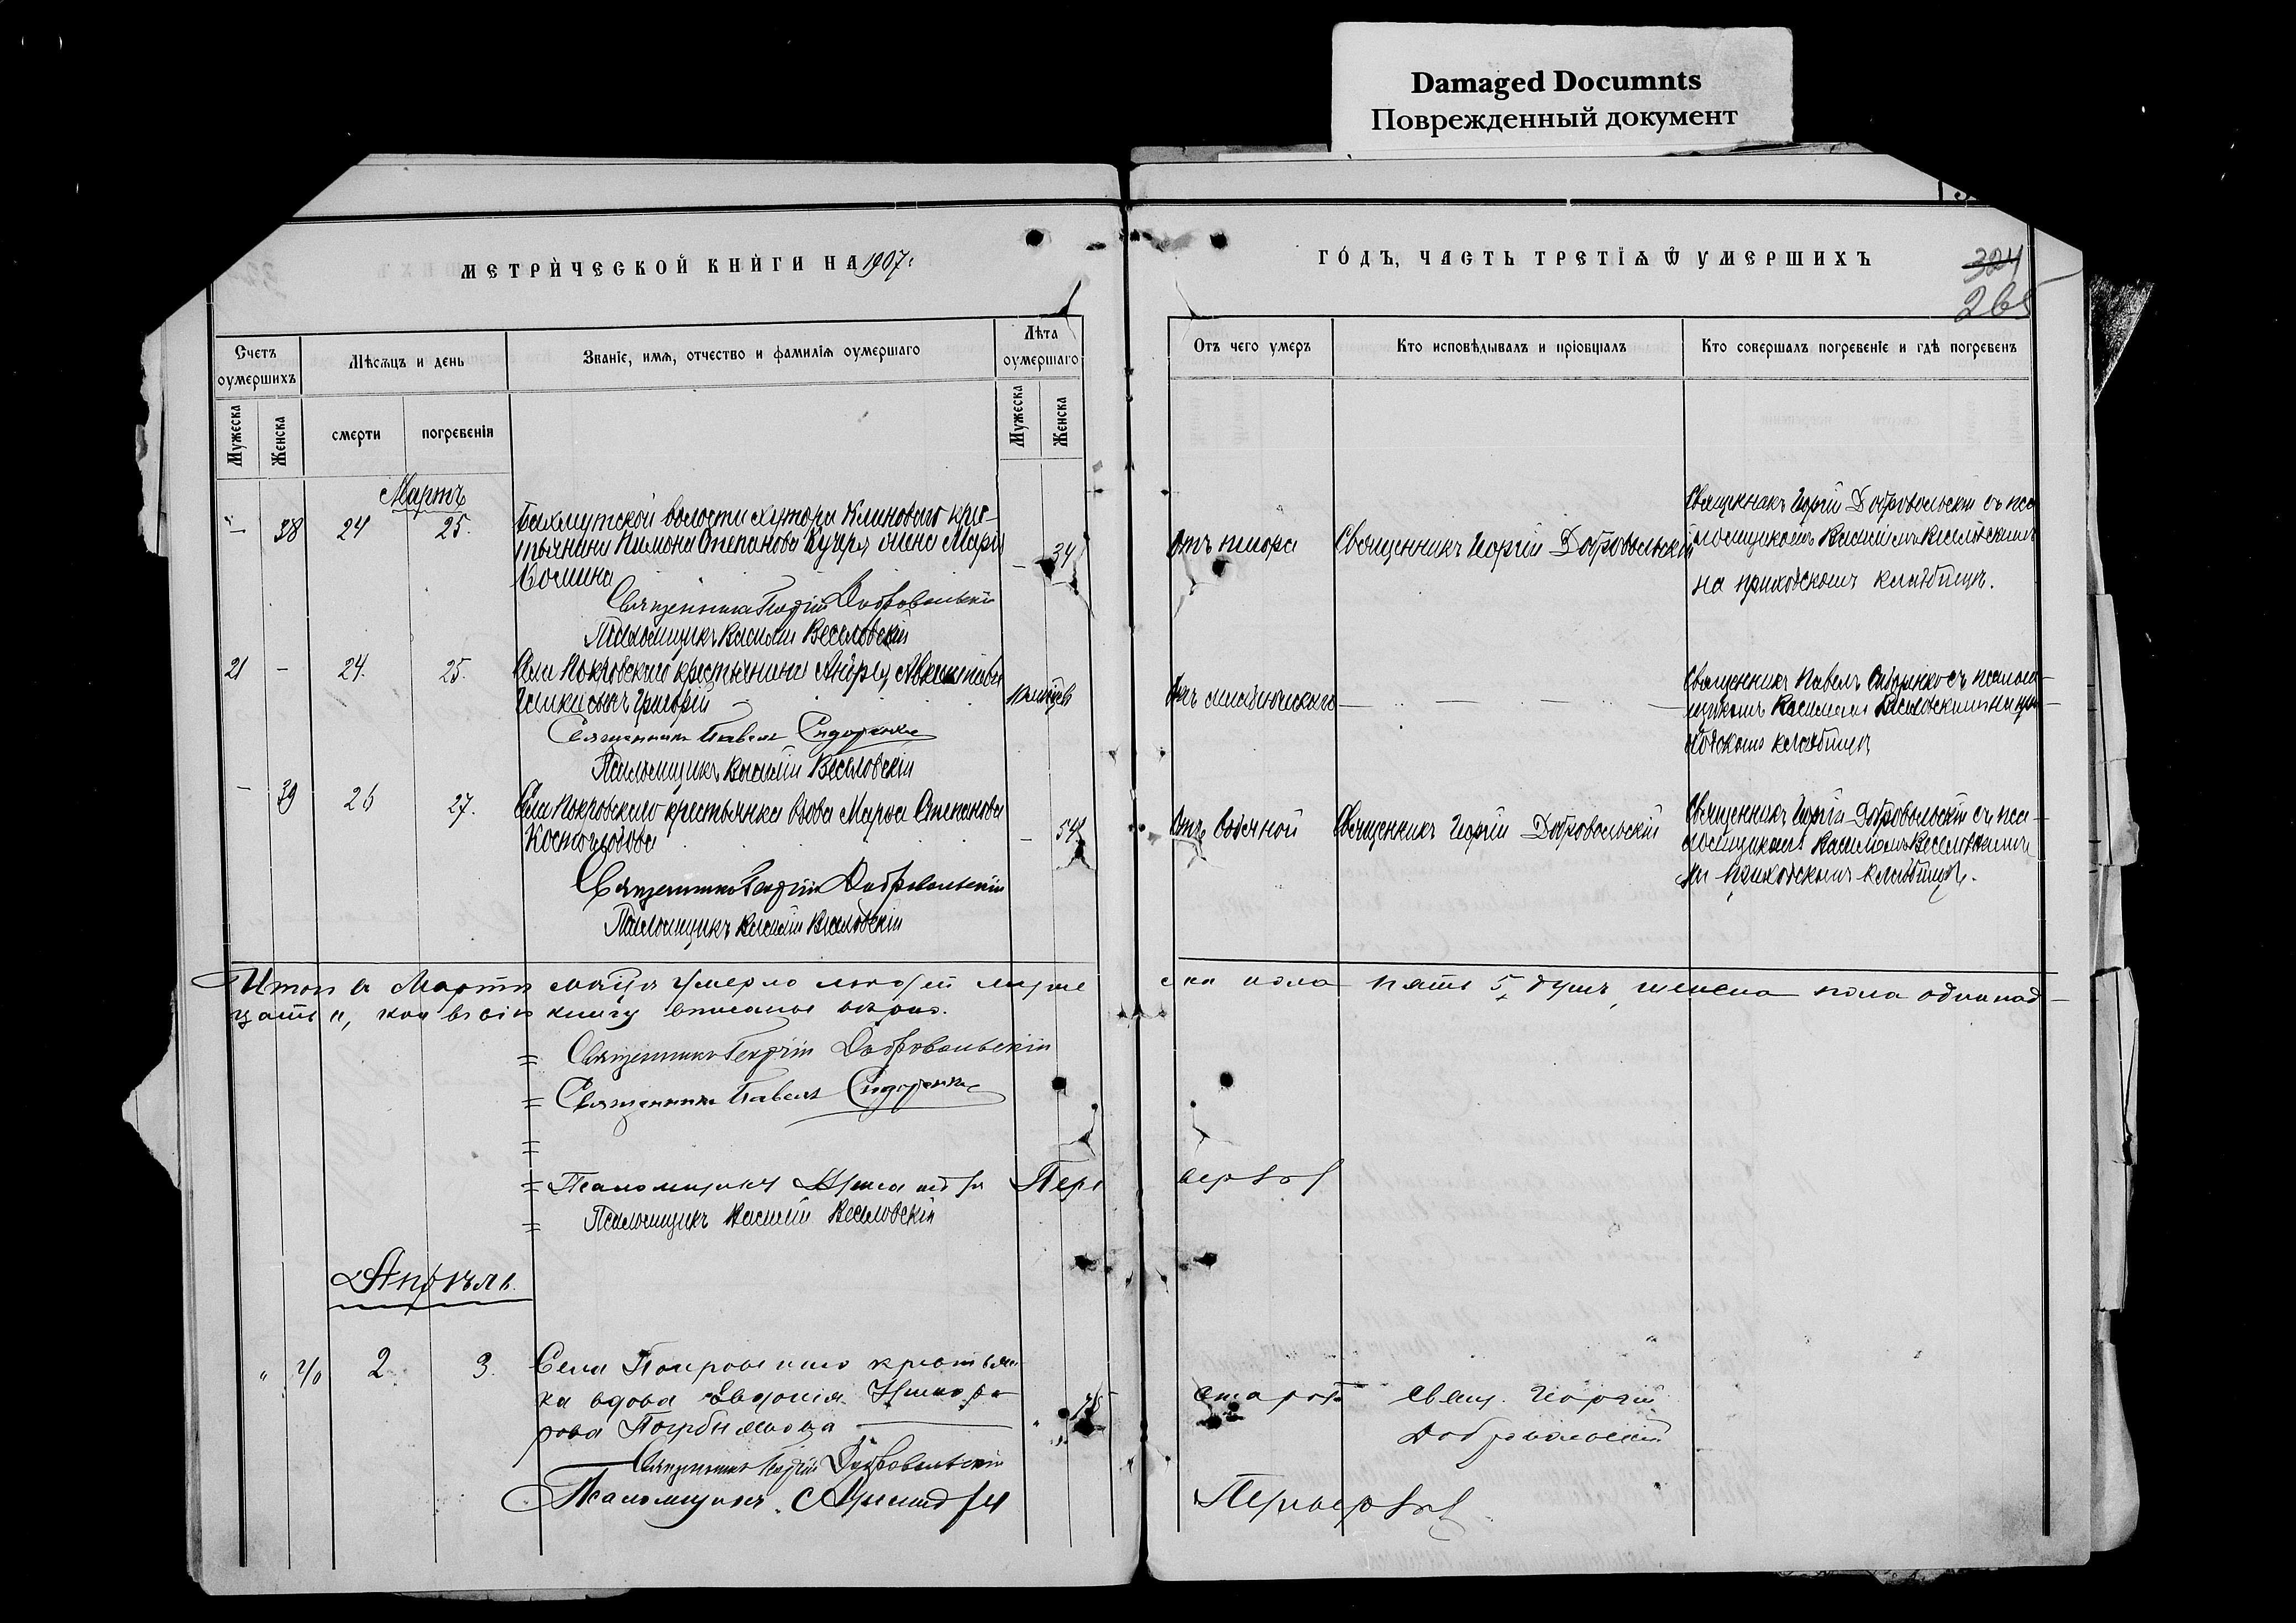 Damaged Documnts
Поврежденный документ
МЕТРИЧЕСКОЙ КНИГИ НА 1907 г
ГОДЪ, ЧАСТЬ ТРЕТІѦ Ѿ УМЕРШИХЪ
324
265
Счетъ оумершихъ
Мужеска
Женска
Мѣсѧцъ и день
смерти
погребенія
Званіе, имѧ, отчество и фамиліѧ оумершаго
Лѣта оумершаго
Мужеска
Женска
Отъ чего умеръ
Кто исповѣдывалъ и пріобщалъ
Кто совершалъ погребеніе и гдѣ погребенъ
Мартъ
— 38 24 25.
Бахмутской волости хутора Клиноваго крес-
тьянина Пимона Степанова Кучеря жена Марія
— 34
Священникъ Георгій Добровольскій
Псаломщикъ Василій Веселовскій
Священникъ Георгій Добровольскій
Священникъ Георгій Добровольскій съ пса
ломщикомъ Василіемъ Веселовскимъ
на приходскомъ кладбищѣ.
21 — 24. 25.
Села Покровскаго крестьянина Андрея
сынъ Григорій
Священникъ Павелъ Сидоренко
Псаломщикъ Василій Веселовскій
Отъ младенческаго
Священникъ Павелъ Сидоренко съ псалом-
щикомъ Василіемъ Веселовскимъ на при-
ходскомъ кладбищѣ
— 39 26 27.
Села Покровскаго крестьянка вдова Марѳа Степанова
— 54
Священникъ Георгій Добровольскій
Псаломщикъ Василій Веселовскій
Отъ водяной
Священникъ Георгій Добровольскій
Священникъ Георгій Добровольскій съ пса-
ломщикомъ Василіемъ Веселовскимъ
на приходскомъ кладбищѣ.
Итого въ Мартѣ мѣсяцѣ умерло людей муже ска пола пять 5 душъ, женска пола одинад-
цать 11, кои въ сію книгу вписаны вѣрно.
= Священникъ Георгій Добровольскій
= Священникъ Павелъ Сидоренко
=
= Псаломщикъ Александръ Перевервъ
= Псаломщикъ Василій Веселовскій
Апрѣль.
" 40 2 3.
Села Покровскаго крестьян-
ка вдова Евдокія Никифо-
рова
старости
Свящ. Георгій
Добровольскій
Священникъ Георгій Добровольскій
Псаломщикъ Александръ